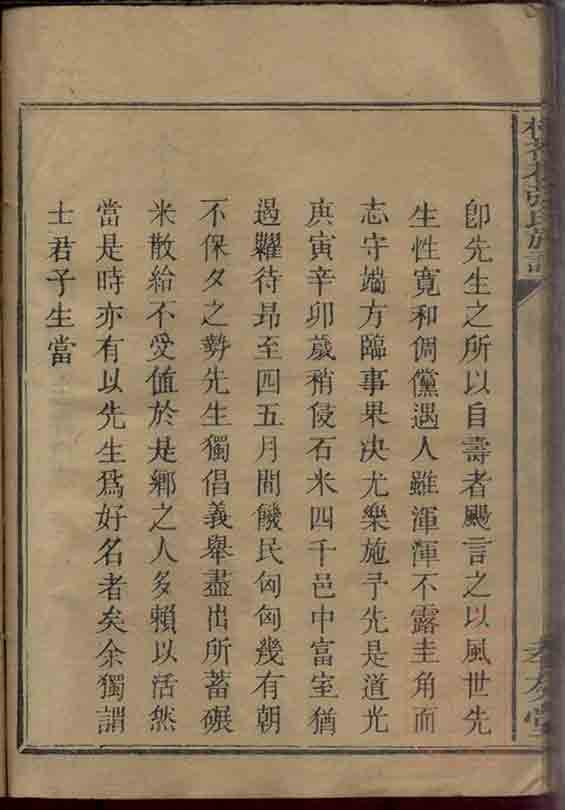 卽先生之所以自壽者颺言之以風世先
生性寬和倜儻遇人雖渾渾不露圭角而
志守端方臨事果决尤樂施予先是道光
庚寅辛卯歲稍侵石米四千邑中富室猶
遏糶待昂至四五月間饑民匈匈幾有朝
不保夕之勢先生獨倡義舉盡出所蓄碾
米散給不受值於是鄉之人多賴以活然
當是時亦有以先生爲好名者矣余獨謂
士君子生當
張氏族譜
堂